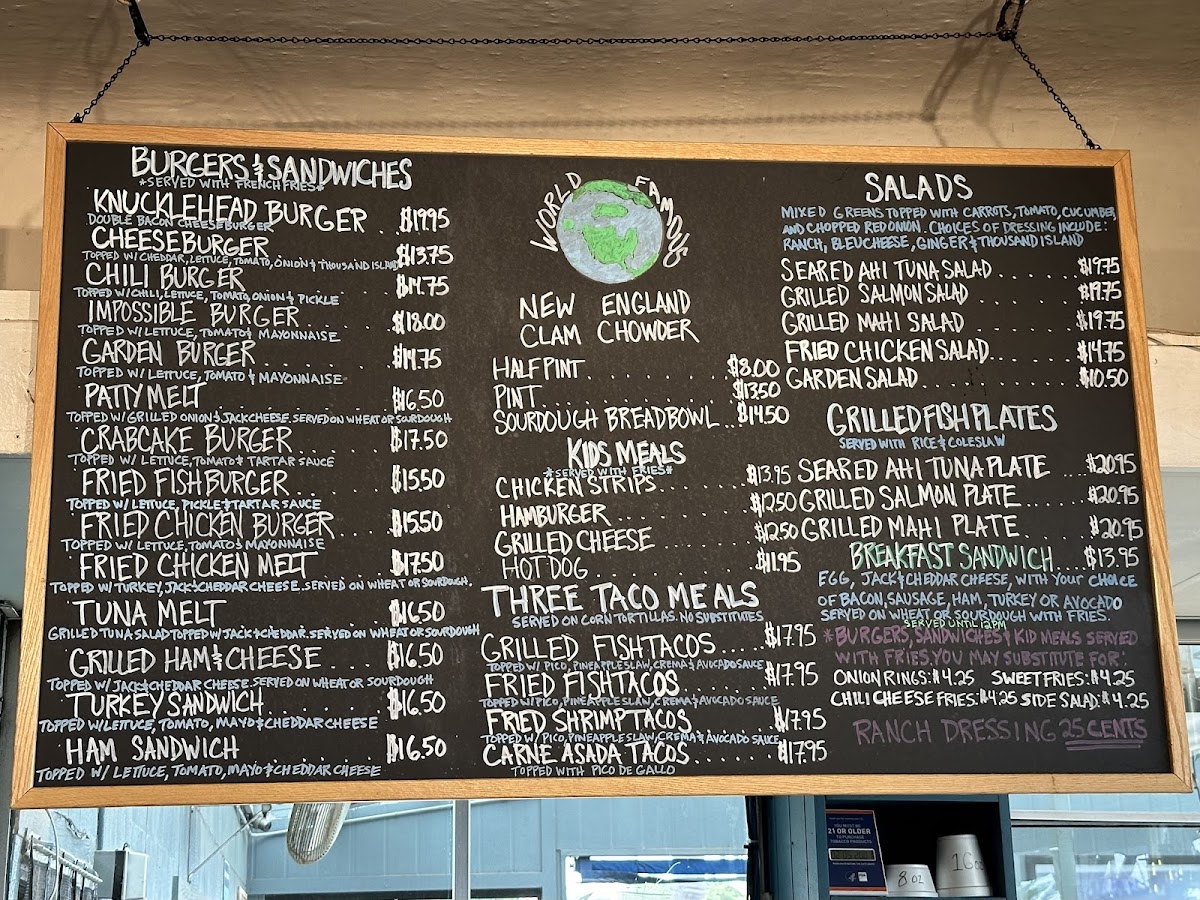 BURGERS & SANDWICHES
*SERVED WITH FRENCH FRIES*
KNUCKLEHEAD BURGER .. $19.95
DOUBLE BACON CHEESEBURGER
CHEESEBURGER ........ $13.75
TOPPED W/ CHEDDAR, LETTUCE, TOMATO, ONION & THOUSAND ISLAND
CHILI BURGER ........ $14.75
TOPPED W/ CHILI, LETTUCE, TOMATO, ONION & PICKLE
IMPOSSIBLE BURGER ..... $18.00
TOPPED W/ LETTUCE, TOMATO & MAYONNAISE
GARDEN BURGER ........ $14.75
TOPPED W/ LETTUCE, TOMATO & MAYONNAISE
PATTY MELT ........ $16.50
TOPPED W/ GRILLED ONION & JACK CHEESE. SERVED ON WHEAT OR SOURDOUGH
CRABCAKE BURGER ...... $17.50
TOPPED W/ LETTUCE, TOMATO & TARTAR SAUCE
FRIED FISH BURGER ...... $15.50
TOPPED W/ LETTUCE, PICKLE & TARTAR SAUCE
FRIED CHICKEN BURGER ... $15.50
TOPPED W/ LETTUCE, TOMATO & MAYONNAISE
FRIED CHICKEN MELT .... $17.50
TOPPED W/ TURKEY, JACK & CHEDDAR CHEESE. SERVED ON WHEAT OR SOURDOUGH.
TUNA MELT ........ $16.50
GRILLED TUNA SALAD TOPPED W/ JACK & CHEDDAR. SERVED ON WHEAT OR SOURDOUGH
GRILLED HAM & CHEESE .... $16.50
TOPPED W/ JACK & CHEDDAR CHEESE. SERVED ON WHEAT OR SOURDOUGH
TURKEY SANDWICH ....... $16.50
TOPPED W/ LETTUCE, TOMATO, MAYO & CHEDDAR CHEESE
HAM SANDWICH ........ $16.50
TOPPED W/ LETTUCE, TOMATO, MAYO & CHEDDAR CHEESE
WORLD FAMOUS
NEW ENGLAND
CLAM CHOWDER
HALF PINT ........ $8.00
PINT ........ $13.50
SOURDOUGH BREADBOWL .. $14.50
KIDS MEALS
*SERVED WITH FRIES*
CHICKEN STRIPS ....... $13.95
HAMBURGER ........ $12.50
GRILLED CHEESE ....... $12.50
HOT DOG ........ $11.95
THREE TACO MEALS
SERVED ON CORN TORTILLAS. NO SUBSTITUTES
GRILLED FISH TACOS ..... $17.95
TOPPED W/ PICO, PINEAPPLE SLAW, CREMA & AVOCADO SAUCE
FRIED FISH TACOS ...... $17.95
TOPPED W/ PICO, PINEAPPLE SLAW, CREMA & AVOCADO SAUCE
FRIED SHRIMP TACOS ...... $17.95
TOPPED W/ PICO, PINEAPPLE SLAW, CREMA & AVOCADO SAUCE
CARNE ASADA TACOS ...... $17.95
TOPPED WITH PICO DE GALLO
SALADS
MIXED GREENS TOPPED WITH CARROTS, TOMATO, CUCUMBER,
AND CHOPPED RED ONION. CHOICES OF DRESSING INCLUDE:
RANCH, BLEUCHEESE, GINGER & THOUSAND ISLAND
SEARED AHI TUNA SALAD ...... $19.75
GRILLED SALMON SALAD ........ $19.75
GRILLED MAHI SALAD ........ $19.75
FRIED CHICKEN SALAD ...... $14.75
GARDEN SALAD ........ $10.50
GRILLED FISH PLATES
SERVED WITH RICE & COLESLAW
SEARED AHI TUNA PLATE ... $20.95
GRILLED SALMON PLATE ..... $20.95
GRILLED MAHI PLATE ..... $20.95
BREAKFAST SANDWICH .... $13.95
EGG, JACK & CHEDDAR CHEESE, WITH YOUR CHOICE
OF BACON, SAUSAGE, HAM, TURKEY OR AVOCADO
SERVED ON WHEAT OR SOURDOUGH WITH FRIES.
SERVED UNTIL 12PM
*BURGERS, SANDWICHES & KID MEALS SERVED
WITH FRIES. YOU MAY SUBSTITUTE FOR:
ONION RINGS: $4.25 SWEET FRIES: $4.25
CHILI CHEESE FRIES: $4.25 SIDE SALAD: $4.25
RANCH DRESSING 25 CENTS
YOU MUST BE
21 OR OLDER
TO PURCHASE
TOBACCO PRODUCTS
8 OZ
16 oz